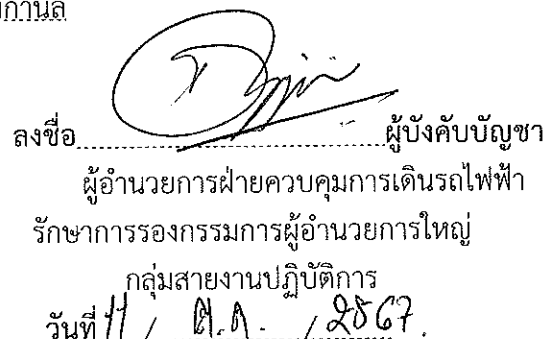 ลงชื่อ ผู้บังคับบัญชา
ผู้อำนวยการฝ่ายควบคุมการเดินรถไฟฟ้า
รักษาการรองกรรมการผู้อำนวยการใหญ่
กลุ่มสายงานปฏิบัติการ
วันที่ 11 / / 2567